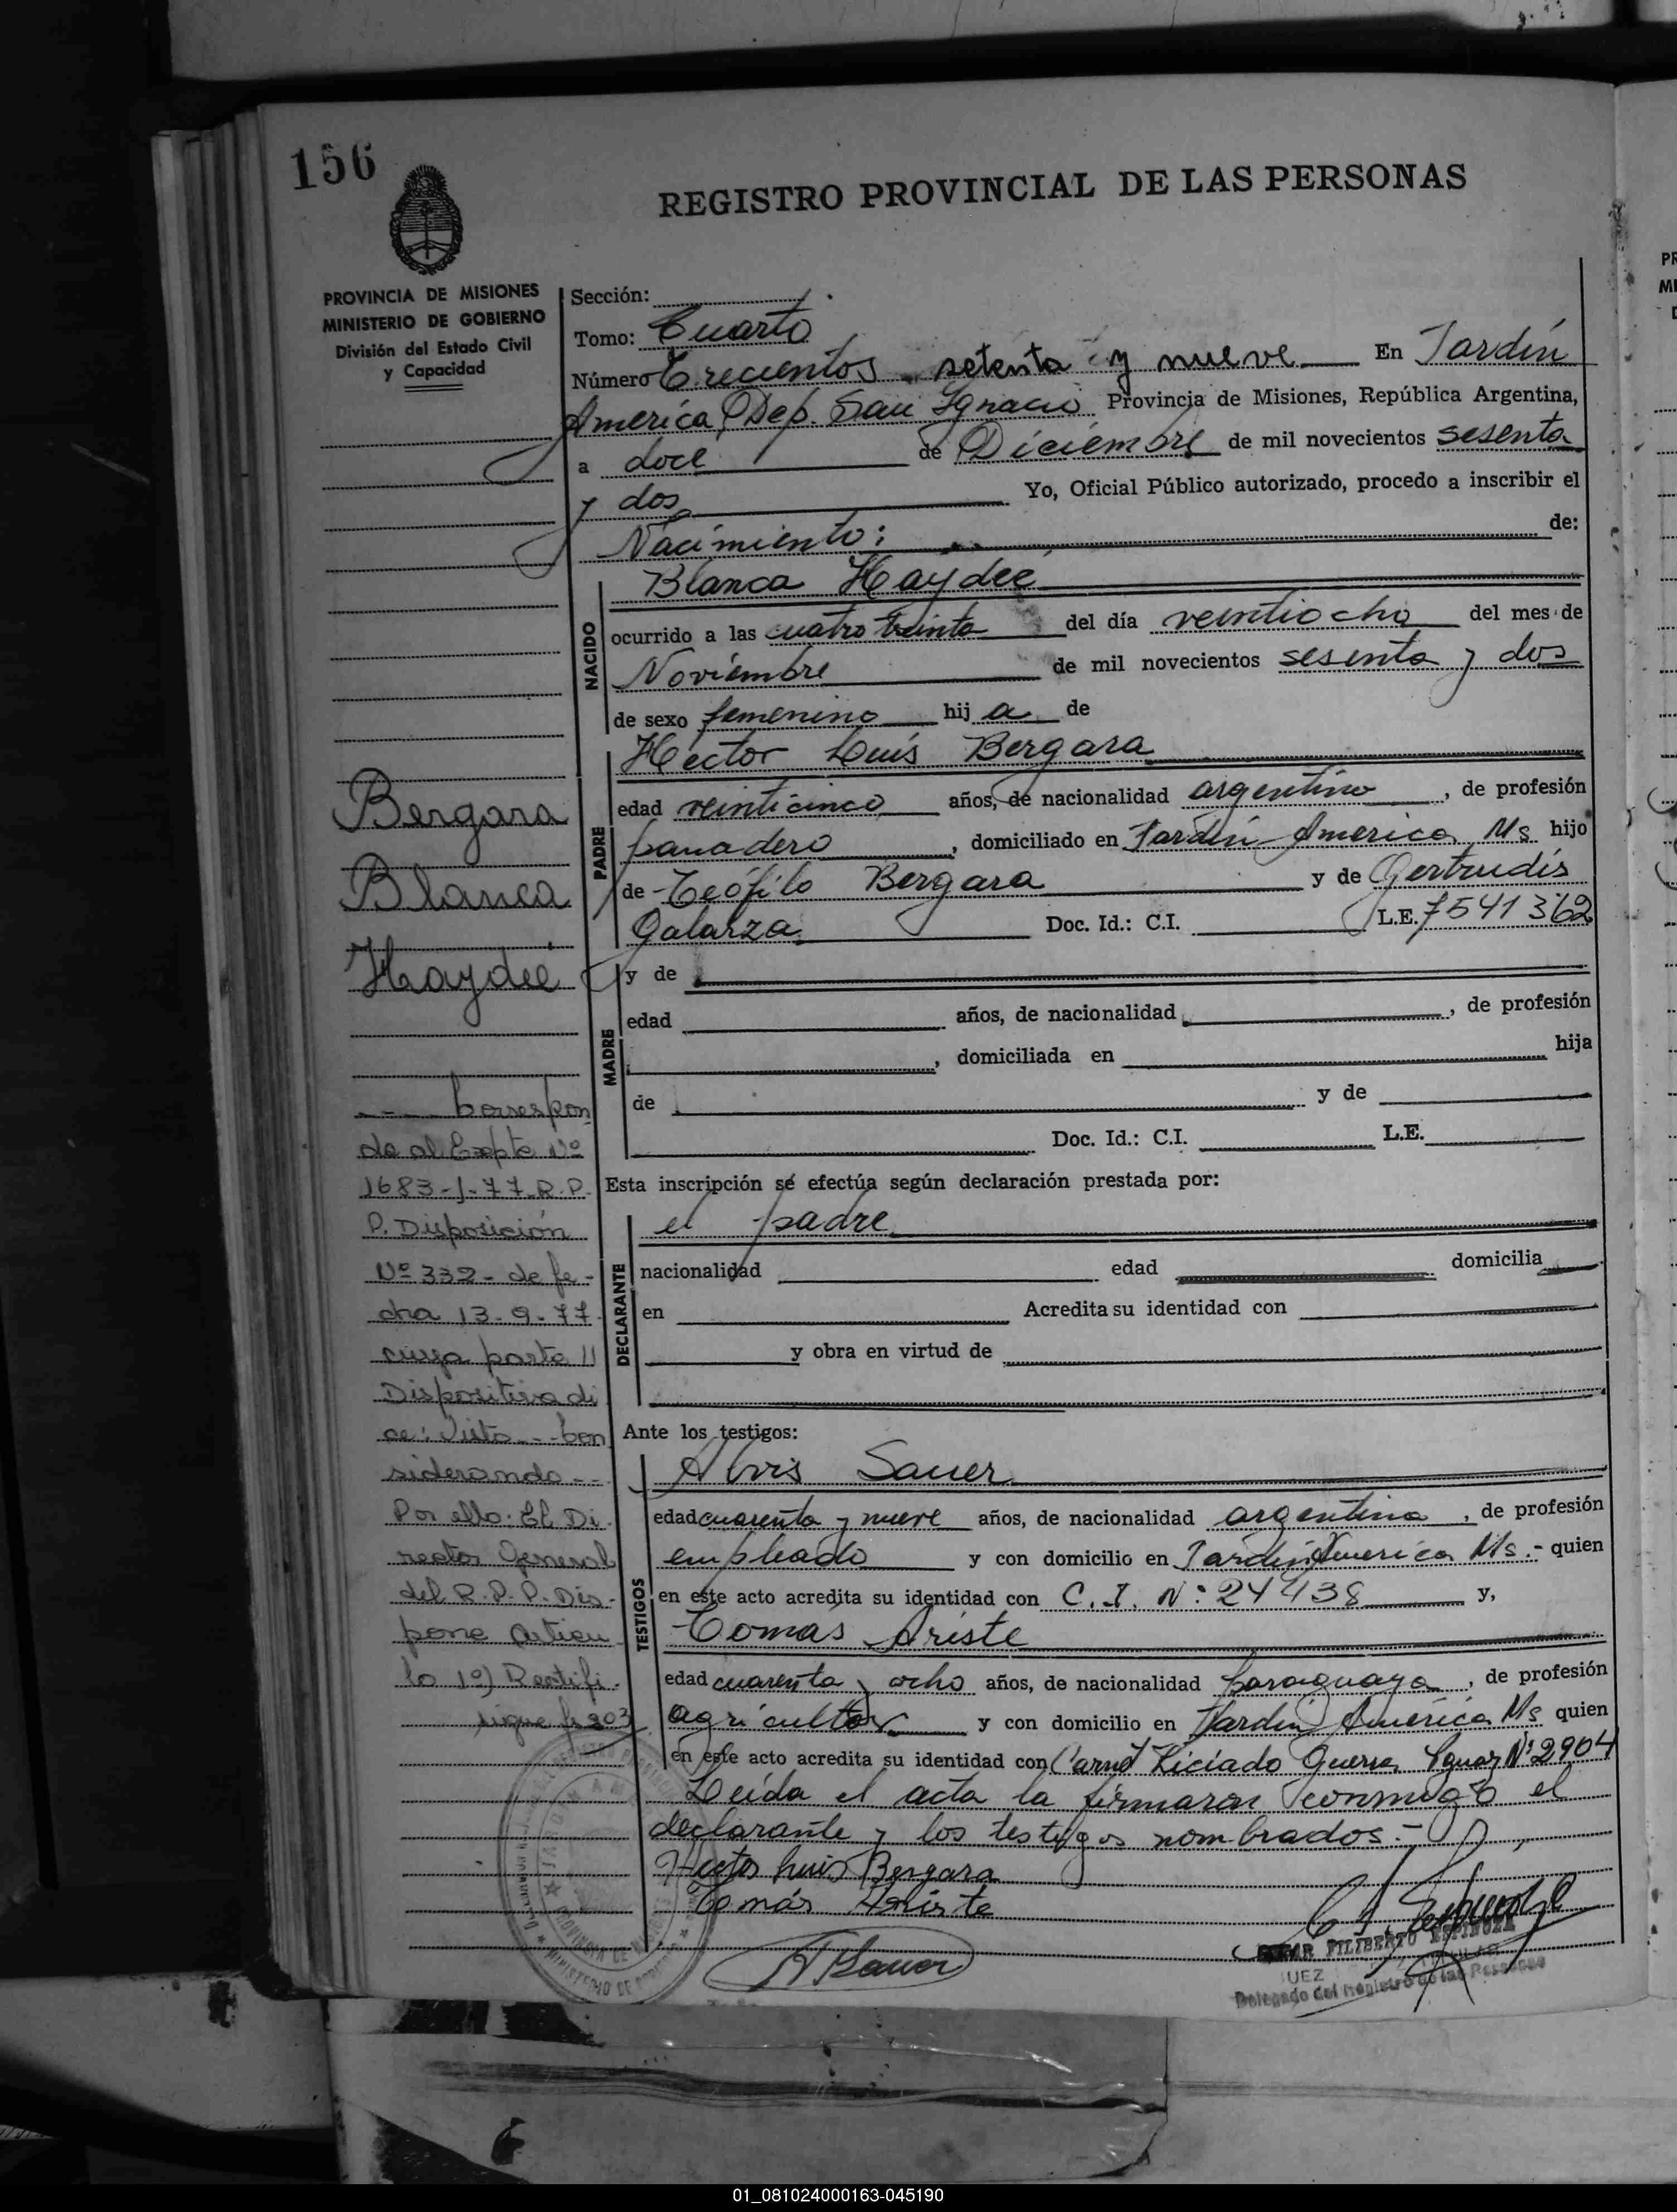 156
REGISTRO PROVINCIAL DE LAS PERSONAS
PROVINCIA DE MISIONES
MINISTERIO DE GOBIERNO
División del Estado Civil
y Capacidad
Sección:
Tomo: Cuarto
Número Trecientos setenta y nueve En Jardín
América, Dep. San Ignacio Provincia de Misiones, República Argentina,
a doce de Diciembre de mil novecientos sesenta
y dos Yo, Oficial Público autorizado, procedo a inscribir el
Nacimiento: de:
NACIDO
Blanca Haydeé
ocurrido a las cuatro treinta del día veintiocho del mes de
Noviembre de mil novecientos sesenta y dos
de sexo femenino hij a de
PADRE
Héctor Luís Bergara
edad veinticinco años, de nacionalidad argentino, de profesión
panadero, domiciliado en Jardín America Ms hijo
de Teófilo Bergara y de Gertrudis
Galarza Doc. Id.: C.I. L.E. 7541362
MADRE
y de
edad años, de nacionalidad , de profesión
, domiciliada en hija
de y de
Doc. Id.: C.I. L.E.
Esta inscripción se efectúa según declaración prestada por:
DECLARANTE
el padre
nacionalidad edad domicilia
en Acredita su identidad con
y obra en virtud de
Ante los testigos:
TESTIGOS
Alvis Sauer
edad cuarenta y nueve años, de nacionalidad argentina, de profesión
empleado y con domicilio en Jardín America Ms.- quien
en este acto acredita su identidad con C.I. Nº: 24438 y,
Tomás Ariste
edad cuarenta y ocho años, de nacionalidad paraguaya, de profesión
agricultor y con domicilio en Jardín América Ms quien
en este acto acredita su identidad con Carnet Liciado Guerra Nº 2904
Leída el acta la firmaron conmigo el
declarante y los testigos nombrados.-
Hector Luis Bergara
Tomás Ariste
A Sauer
FILIBERTO ESPINOZA
JUEZ
Delegado del Registro de las Personas
Bergara
Blanca
Haydeé
---- Correspon
de al Expte Nº
1683-J-77.R.P.
P. Disposición
Nº 332- de fe-
cha 13-9-77
cuya parte //
Dispositiva di
ce: Visto---Con
siderando--
Por ello: El Di
rector General
del R.P.P. Dis-
pone Articu
lo 1º) Rectifi-
sigue fs 203
01_081024000163-045190